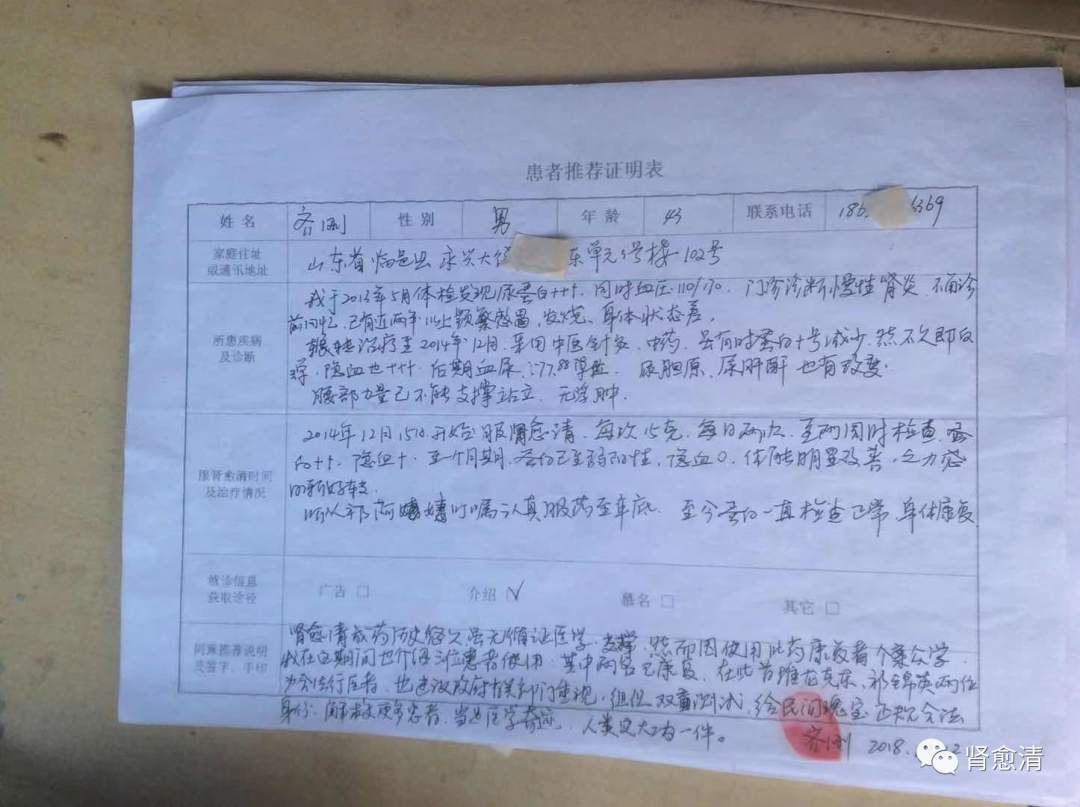 患者推荐证明表
姓 名 齐 性 别 男 年 龄 43 联系电话 186 6369
家庭住址
或通讯地址
山东省临邑县永兴大 东单元号楼102号
所患疾病
及诊断
我于2013年5月体检发现尿蛋白+++,同时血压110/170。门诊诊断慢性肾炎,不确诊
前 已有近两年以上频繁感冒,发烧、身体状态差。
治疗至2014年12月,采用中医针灸、中药,虽有时蛋白+号减少,然不久即
,隐血也+++,后期血尿, 尿胆原、尿 也有改变。
腰部力量已不能支撑站立,无浮肿。
服肾愈清时间
及治疗情况
2014年12月15日开始服肾愈清,每次15克,每日两次,至两周时检查,蛋
白++,隐血+,至一个月期,蛋白已至弱阳性,隐血0,体能明显改善,乏力感
明显好转。
所以祁 叮嘱认真服药至年底。至今蛋白一直检查正常,身体康复
就诊信息
获取途径
广告 □ 介绍 ☑ 慕名 □ 其它 □
同意推荐说明
及签字、手印
肾愈清成药历史悠久虽无循证医学支撑,然而因使用此药康复者个案众学,
我在 期间也介绍 位患者使用,其中两名已康复,在此首推 祁锦英两位
为合法行医者,也建议政府有关部门重视,组织双盲测试,给民间瑰宝正规合法
身份,解救更多患者,当是医学奇迹,人类 大功一件。
齐 2018. 2
肾愈清